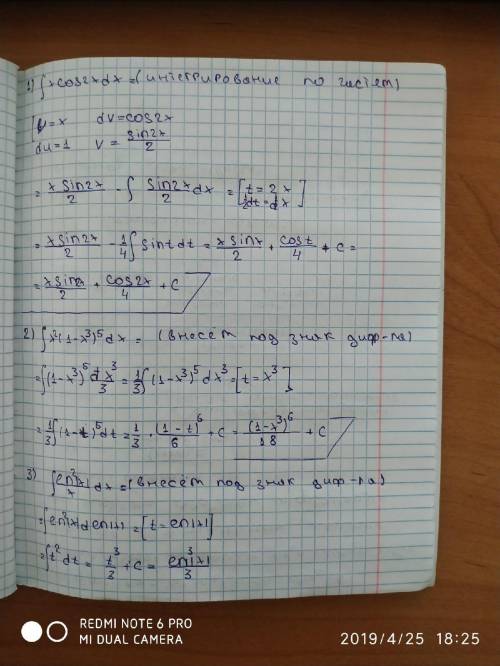 1) ∫x cos2x dx = (интегрирование по частям)
[u = x dv = cos2x
du = 1 v = sin2x/2
= x sin2x/2 - ∫ sin2x/2 dx = [t = 2x
1/2 dt = dx]
= x sin2x/2 - 1/4 ∫ sint dt = x sinx/2 + cost/4 + c =
= x sin2x/2 + cos2x/4 + c
2) ∫x²(1-x³)⁵ dx = (внесём под знак диф-ла)
= ∫(1-x³)⁵ dx³/3 = 1/3 ∫(1-x³)⁵ dx³ = [t = x³]
= 1/3 ∫(1-t)⁵ dt = 1/3 · (1-t)⁶/6 + c = (1-x³)⁶/18 + c
3) ∫ ln²|x|/x dx = (внесём под знак диф-ла)
= ∫ln²|x| d ln|x| = [t = ln|x|]
= ∫t² dt = t³/3 + c = ln³|x|/3
REDMI NOTE 6 PRO
MI DUAL CAMERA
2019/4/25 18:25